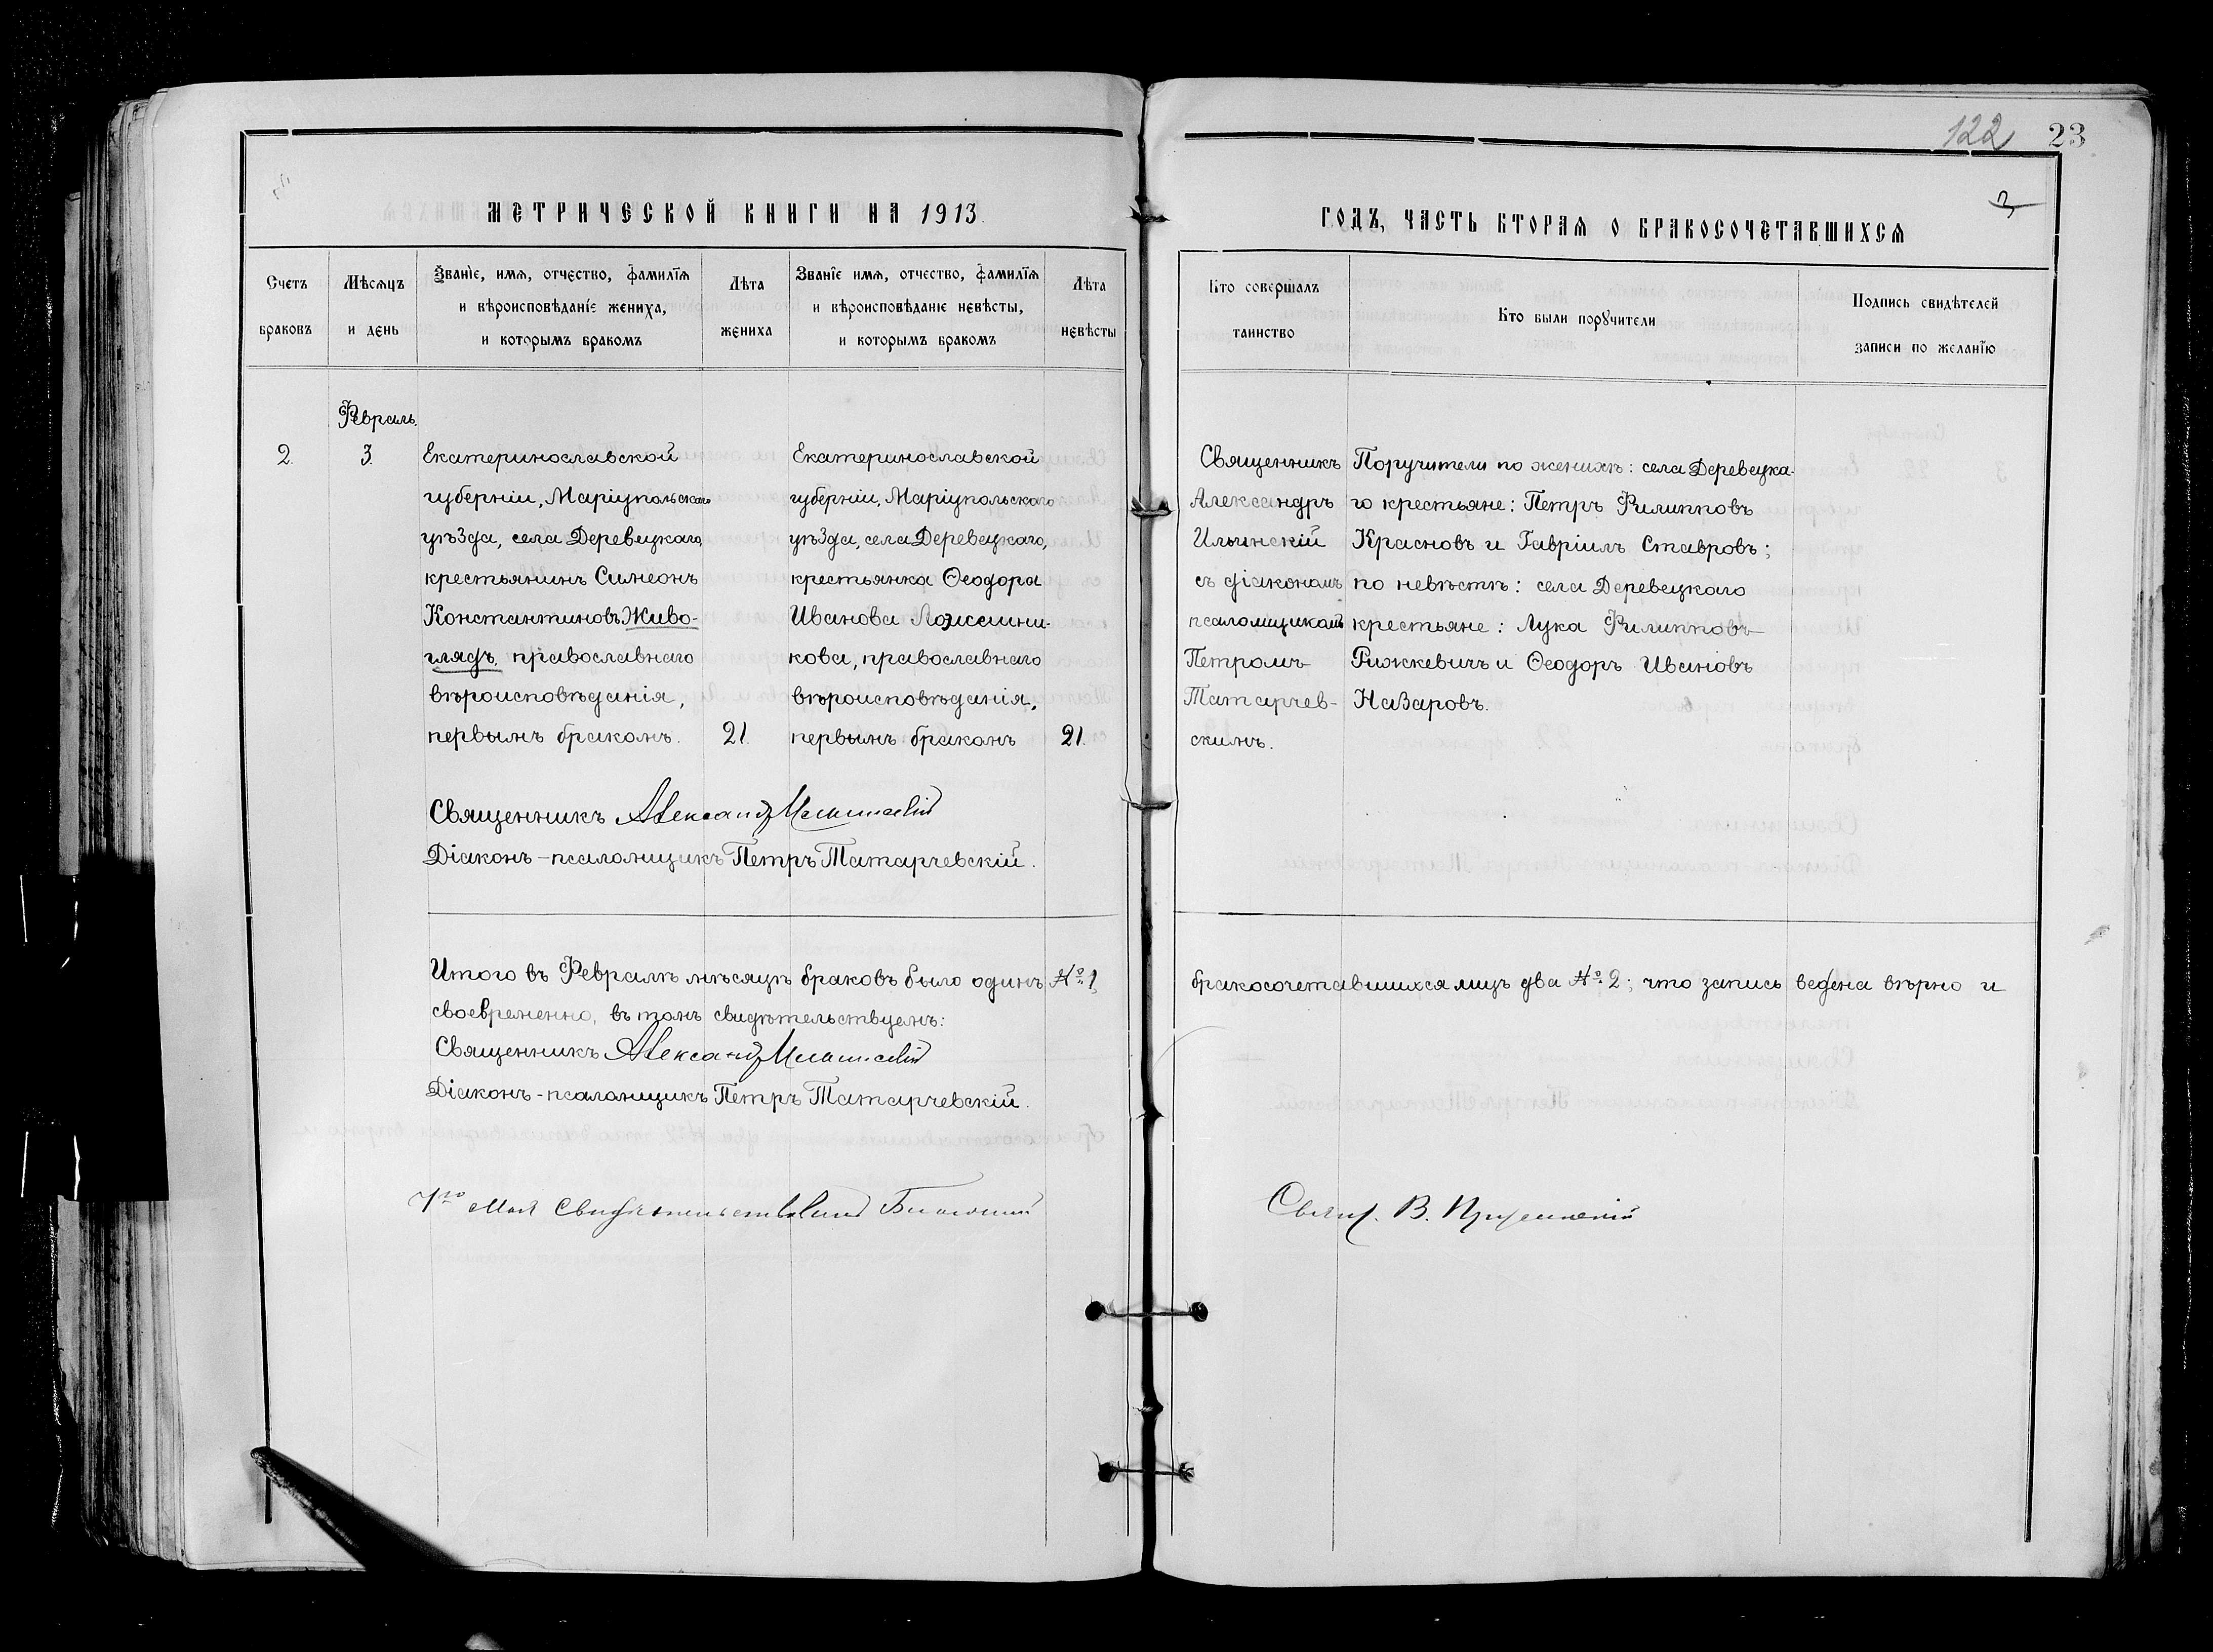 122 23
3
МЕТРИЧЕСКОЙ КНИГИ НА 1913
ГОДЪ, ЧАСТЬ ВТОРАѦ О БРАКОСОЧЕТАВШИХСѦ
Счетъ
браковъ
Мѣсѧцъ
и день
Званїе, имѧ, отчество, фамилїѧ
и вѣроисповѣданїе жениха,
и которымъ бракомъ
Лѣта
жениха
Званїе имѧ, отчество, фамилїѧ
и вѣроисповѣданїе невѣсты,
и которымъ бракомъ
Лѣта
невѣсты
Кто совершалъ
таинство
Кто были порꙋчители
Подпись свидѣтелей
записи по желанїю
Февраль.
2. 3.
Екатеринославской
губерніи, Маріупольскаго
уѣзда, села Деревецкаго,
крестьянинъ Симеонъ
Константиновъ Живо-
глядъ, православнаго
вѣроисповѣданія,
первымъ бракомъ.
21.
Екатеринославской
губерніи, Маріупольскаго
уѣзда, села Деревецкаго,
крестьянка Ѳеодора
Иванова
кова, православнаго
вѣроисповѣданія,
первымъ бракомъ
21.
Священникъ
Александръ
Ильинскій
съ діакономъ
псаломщикомъ
Петромъ
Татарчев-
скимъ.
Поручители по женихѣ: села Деревецка-
го крестьяне: Петръ Филипповъ
Красновъ и Гавріилъ Ставровъ;
по невѣстѣ: села Деревецкаго
крестьяне: Лука Филипповъ
Рижкевичъ и Ѳеодоръ Ивановъ
Назаровъ.
Священникъ Александръ Ильинскій
Діаконъ-псаломщикъ Петръ Татарчевскій.
Итого въ Февралѣ мѣсяцѣ браковъ было одинъ №1, бракосочетавшихся лицъ два №2; что запись ведена вѣрно и
своевременно, въ томъ свидѣтельствуемъ:
Священникъ Александръ Ильинскій
Діаконъ-псаломщикъ Петръ Татарчевскій.
7го Мая Свидѣтельствовалъ Благочинный
Свящ. В.